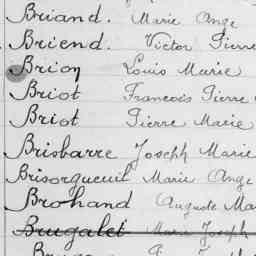 Briand. Marie Ange
Briend. Victor Pierre
Brion Louis Marie
Briot François Pierre
Briot Pierre Marie
Brisbarre Joseph Marie
Brisorgueuil Marie Ange
Brohand Auguste Ma
Brugalet Marie Joseph